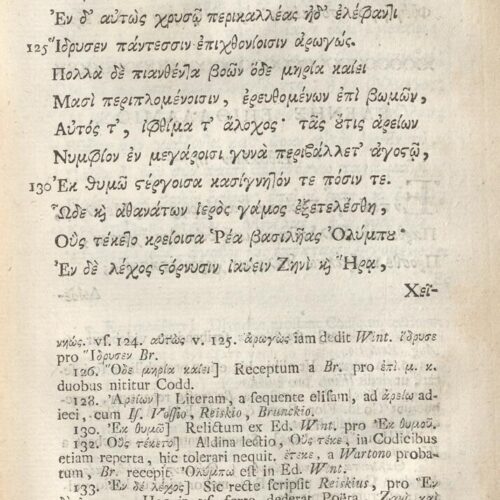 Ἐν δ᾽ αὐτὼς χρυσῷ περικαλλέας ἠδ᾽ ἐλέφαντι
125 Ἵδρυσεν πάντεσσιν ἐπιχθονίοισιν ἀρωγώς.
Πολλὰ δὲ πιανθέντα βοῶν ὅδε μηρία καίει
Μασὶ περιπλομένοισιν, ἐρευθομένων ἐπὶ βωμῶν,
Αὐτός τ᾽, ἰφθίμα τ᾽ ἄλοχος· τᾶς οὔτις ἀρείων
Νυμφίον ἐν μεγάροισι γυνὰ περιβάλλετ᾽ ἀγοστῷ,
130 Ἐκ θυμῶ στέργοισα κασίγνητόν τε πόσιν τε.
Ὧδε καὶ ἀθανάτων ἱερὸς γάμος ἐξετελέσθη,
Οὓς τέκετο κρείοισα Ῥέα βασιλῆας Ὀλύμπου·
Ἐν δὲ λέχος στόρνυσιν ἰαύειν Ζηνὶ καὶ Ἥρᾳ,
Χεῖ-
νηώς. vs. 124. αὐτὼς v. 125. ἀρωγὼς iam dedit Wint. ἵδρυσε
pro Ἵδρυσεν Br.
126. Ὅδε μηρία καίει] Receptum a Br. pro ἐπὶ μ. κ.
duobus nititur Codd.
128. Ἀρείων] Literam, a sequente elisam, ad ἀρείω ad-
ieci, cum Is. Vossio, Reiskio, Brunckio.
130. Ἐκ θυμῶ] Relictum ex Ed. Wint. pro Ἐκ θυμοῦ.
132. Οὓς τέκετο] Aldina lectio, Οὓς τέκε, in Codicibus
etiam reperta, hic tolerari nequit. ἔτεκε, a Wartono proba-
tum, Br. recepit. Ὀλύμπω est in Ed. Wint.
133. Ἐν δὲ λέχος] Sic recte scripsit Reiskius, pro Ἐν